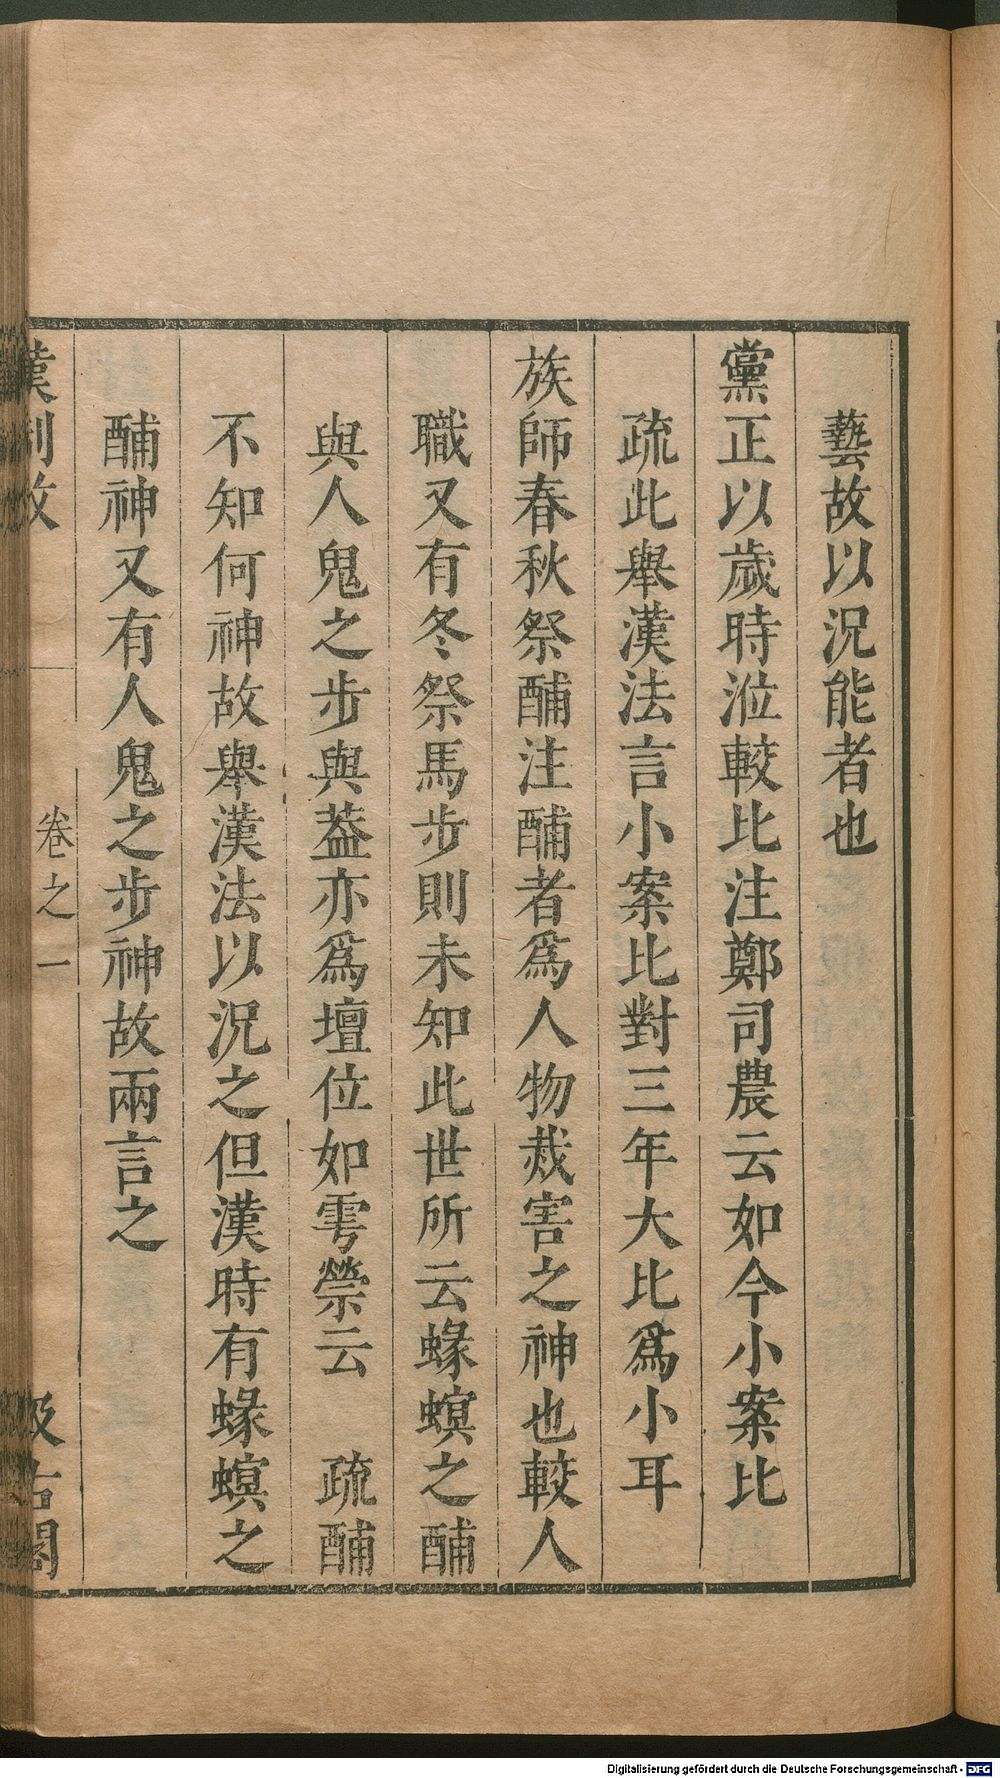 藝故以況能者也
黨正以歲時涖較比注鄭司農云如今小案比
疏此舉漢法言小案比對三年大比爲小耳
族師春秋祭酺注酺者爲人物烖害之神也較人
職又有冬祭馬步則未知此世所云蝝螟之酺
與人鬼之步與葢亦爲壇位如雩禜云　疏酺
不知何神故舉漢法以況之但漢時有蝝螟之
酺神又有人鬼之步神故兩言之
漢制攷　卷之一　汲古閣
Digitalisierung gefördert durch die Deutsche Forschungsgemeinschaft - DFG